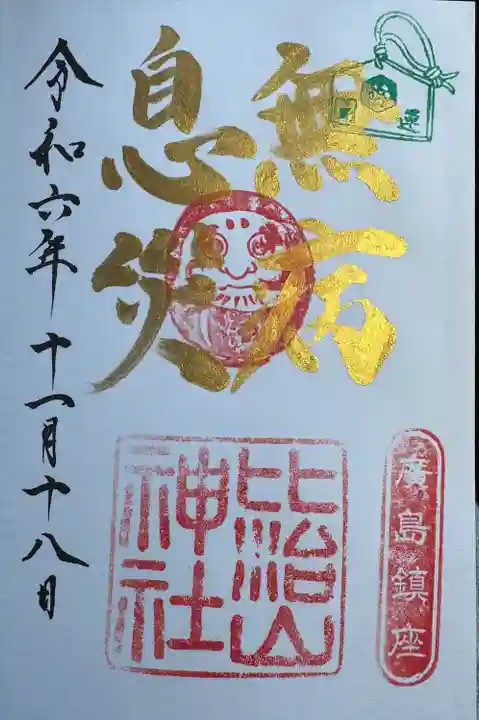 無病
息災
廣島鎮座
比治山
神社
令和六年十一月十八日